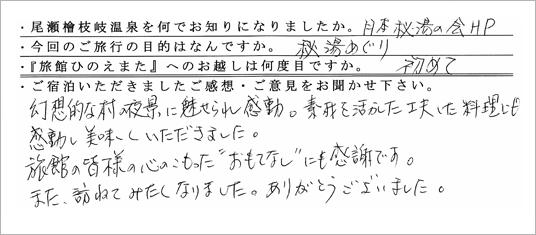 ・尾瀬檜枝岐温泉を何でお知りになりましたか。日本秘湯の会HP
・今回のご旅行の目的はなんですか。 秘湯めぐり
・『旅館ひのえまた』へのお越しは何度目ですか。 初めて
・ご宿泊いただきましたご感想・ご意見をお聞かせ下さい。
幻想的な村の夜景に魅せられ感動。素材を活かした工夫した料理にも
感動し美味しくいただきました。
旅館の皆様の心のこもった"おもてなし"にも感謝です。
また、訪ねてみたくなりました。ありがとうございました。